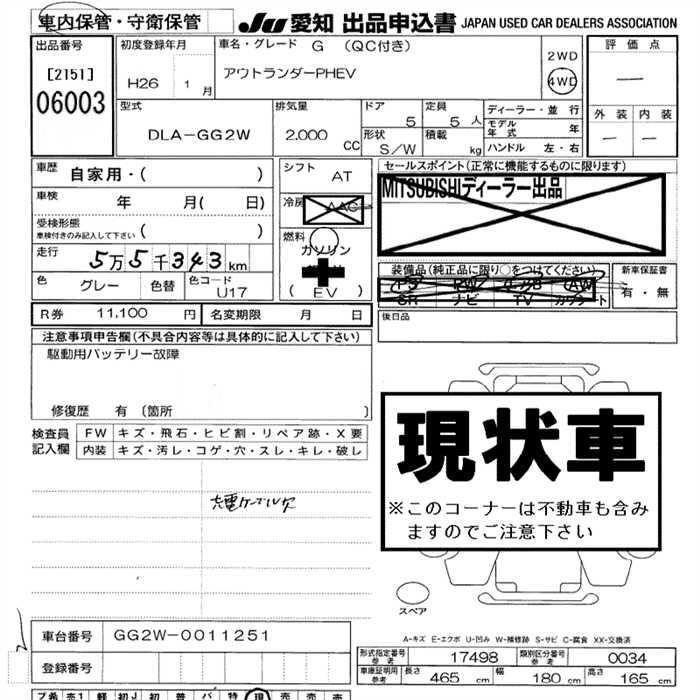 車内保管・守衛保管
JU 愛知 出品申込書 JAPAN USED CAR DEALERS ASSOCIATION
出品番号
[2151]
06003
初度登録年月
H26 1月
車名・グレード G (QC付き)
アウトランダーPHEV
2WD
4WD
評価点
—
外装 内装
— —
型式
DLA-GG2W
排気量
2,000 CC
ドア
5
定員
5人
形状
S/W
積載
kg
ディーラー・並行
モデル年式 年
ハンドル 左・右
車歴
自家用・( )
車検
年 月( 日)
受検形態
車検付きのみ記入して下さい ( )
走行
5万5千343km
色
グレー
色替
色コード
U17
シフト
AT
冷房
AAC
燃料
ガソリン
(EV)
セールスポイント(正常に機能するものに限ります)
MITSUBISHIディーラー出品
装備品(純正品に限り○をつけてください)
PS PW AW
SR ナビ TV
新車保証書
有・無
R券 11,100円
名変期限 月 日
後日品
注意事項申告欄(不具合内容等は具体的に記入して下さい)
駆動用バッテリー故障
修復歴 有〔箇所 〕
検査員記入欄
FW キズ・飛石・ヒビ割・リペア跡・X要
内装 キズ・汚レ・コゲ・穴・スレ・キレ・破レ
充電ケーブル欠
現状車
※このコーナーは不動車も含み
ますのでご注意下さい
スペア
A-キズ E-エクボ U-凹み W-補修跡 S-サビ C-腐食 XX-交換済
車台番号 GG2W-0011251
登録番号
形式指定番号 参考 17498
類別区分番号 参考 0034
車庫証明用 参考 長さ 465 cm 幅 180 cm 高さ 165 cm